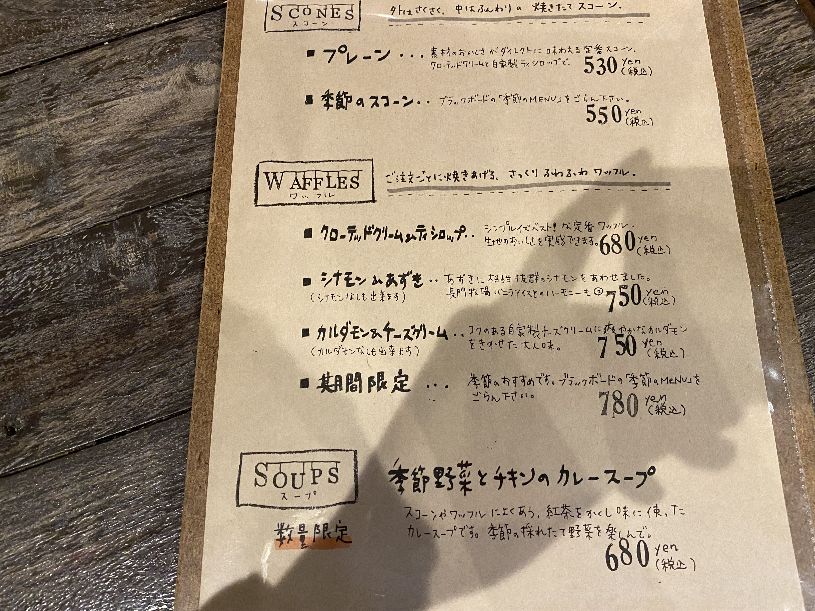 SCONES
スコーン
外はさくさく、中はふんわりの 焼きたてスコーン.
■ プレーン・・・
素材のおいしさがダイレクトに味わえる定番スコーン.
クローテッドクリームと自家製ティシロップで.
530yen
(税込)
■ 季節のスコーン・・
ブラックボードの「季節のMENU」をごらん下さい。
550yen
(税込)
WAFFLES
ワッフル
ご注文ごとに焼きあげる、さっくり ふわふわ ワッフル.
■ クローテッドクリーム&ティシロップ・・
シンプルイズベスト!な定番ワッフル.
生地のおいしさを実感できます。
680yen
(税込)
■ シナモン&あずき・・
(シナモンなしも出来ます)
あずきに相性抜群のシナモンをあわせました。
長門牧場バニラアイスとのハーモニーも
750yen
(税込)
■ カルダモン&チーズクリーム・・
(カルダモンなしも出来ます)
コクのある自家製チーズクリームに爽やかなカルダモン
をきかせた大人味。
750yen
(税込)
■ 期間限定・・・
季節のおすすめです。ブラックボードの「季節のMENU」を
ごらん下さい。
780yen
(税込)
SOUPS
スープ
数量限定
季節野菜とチキンのカレースープ
スコーンやワッフルによくあう、紅茶をかくし味に使った
カレースープです。季節の採れたて野菜を楽しんで。
680yen
(税込)